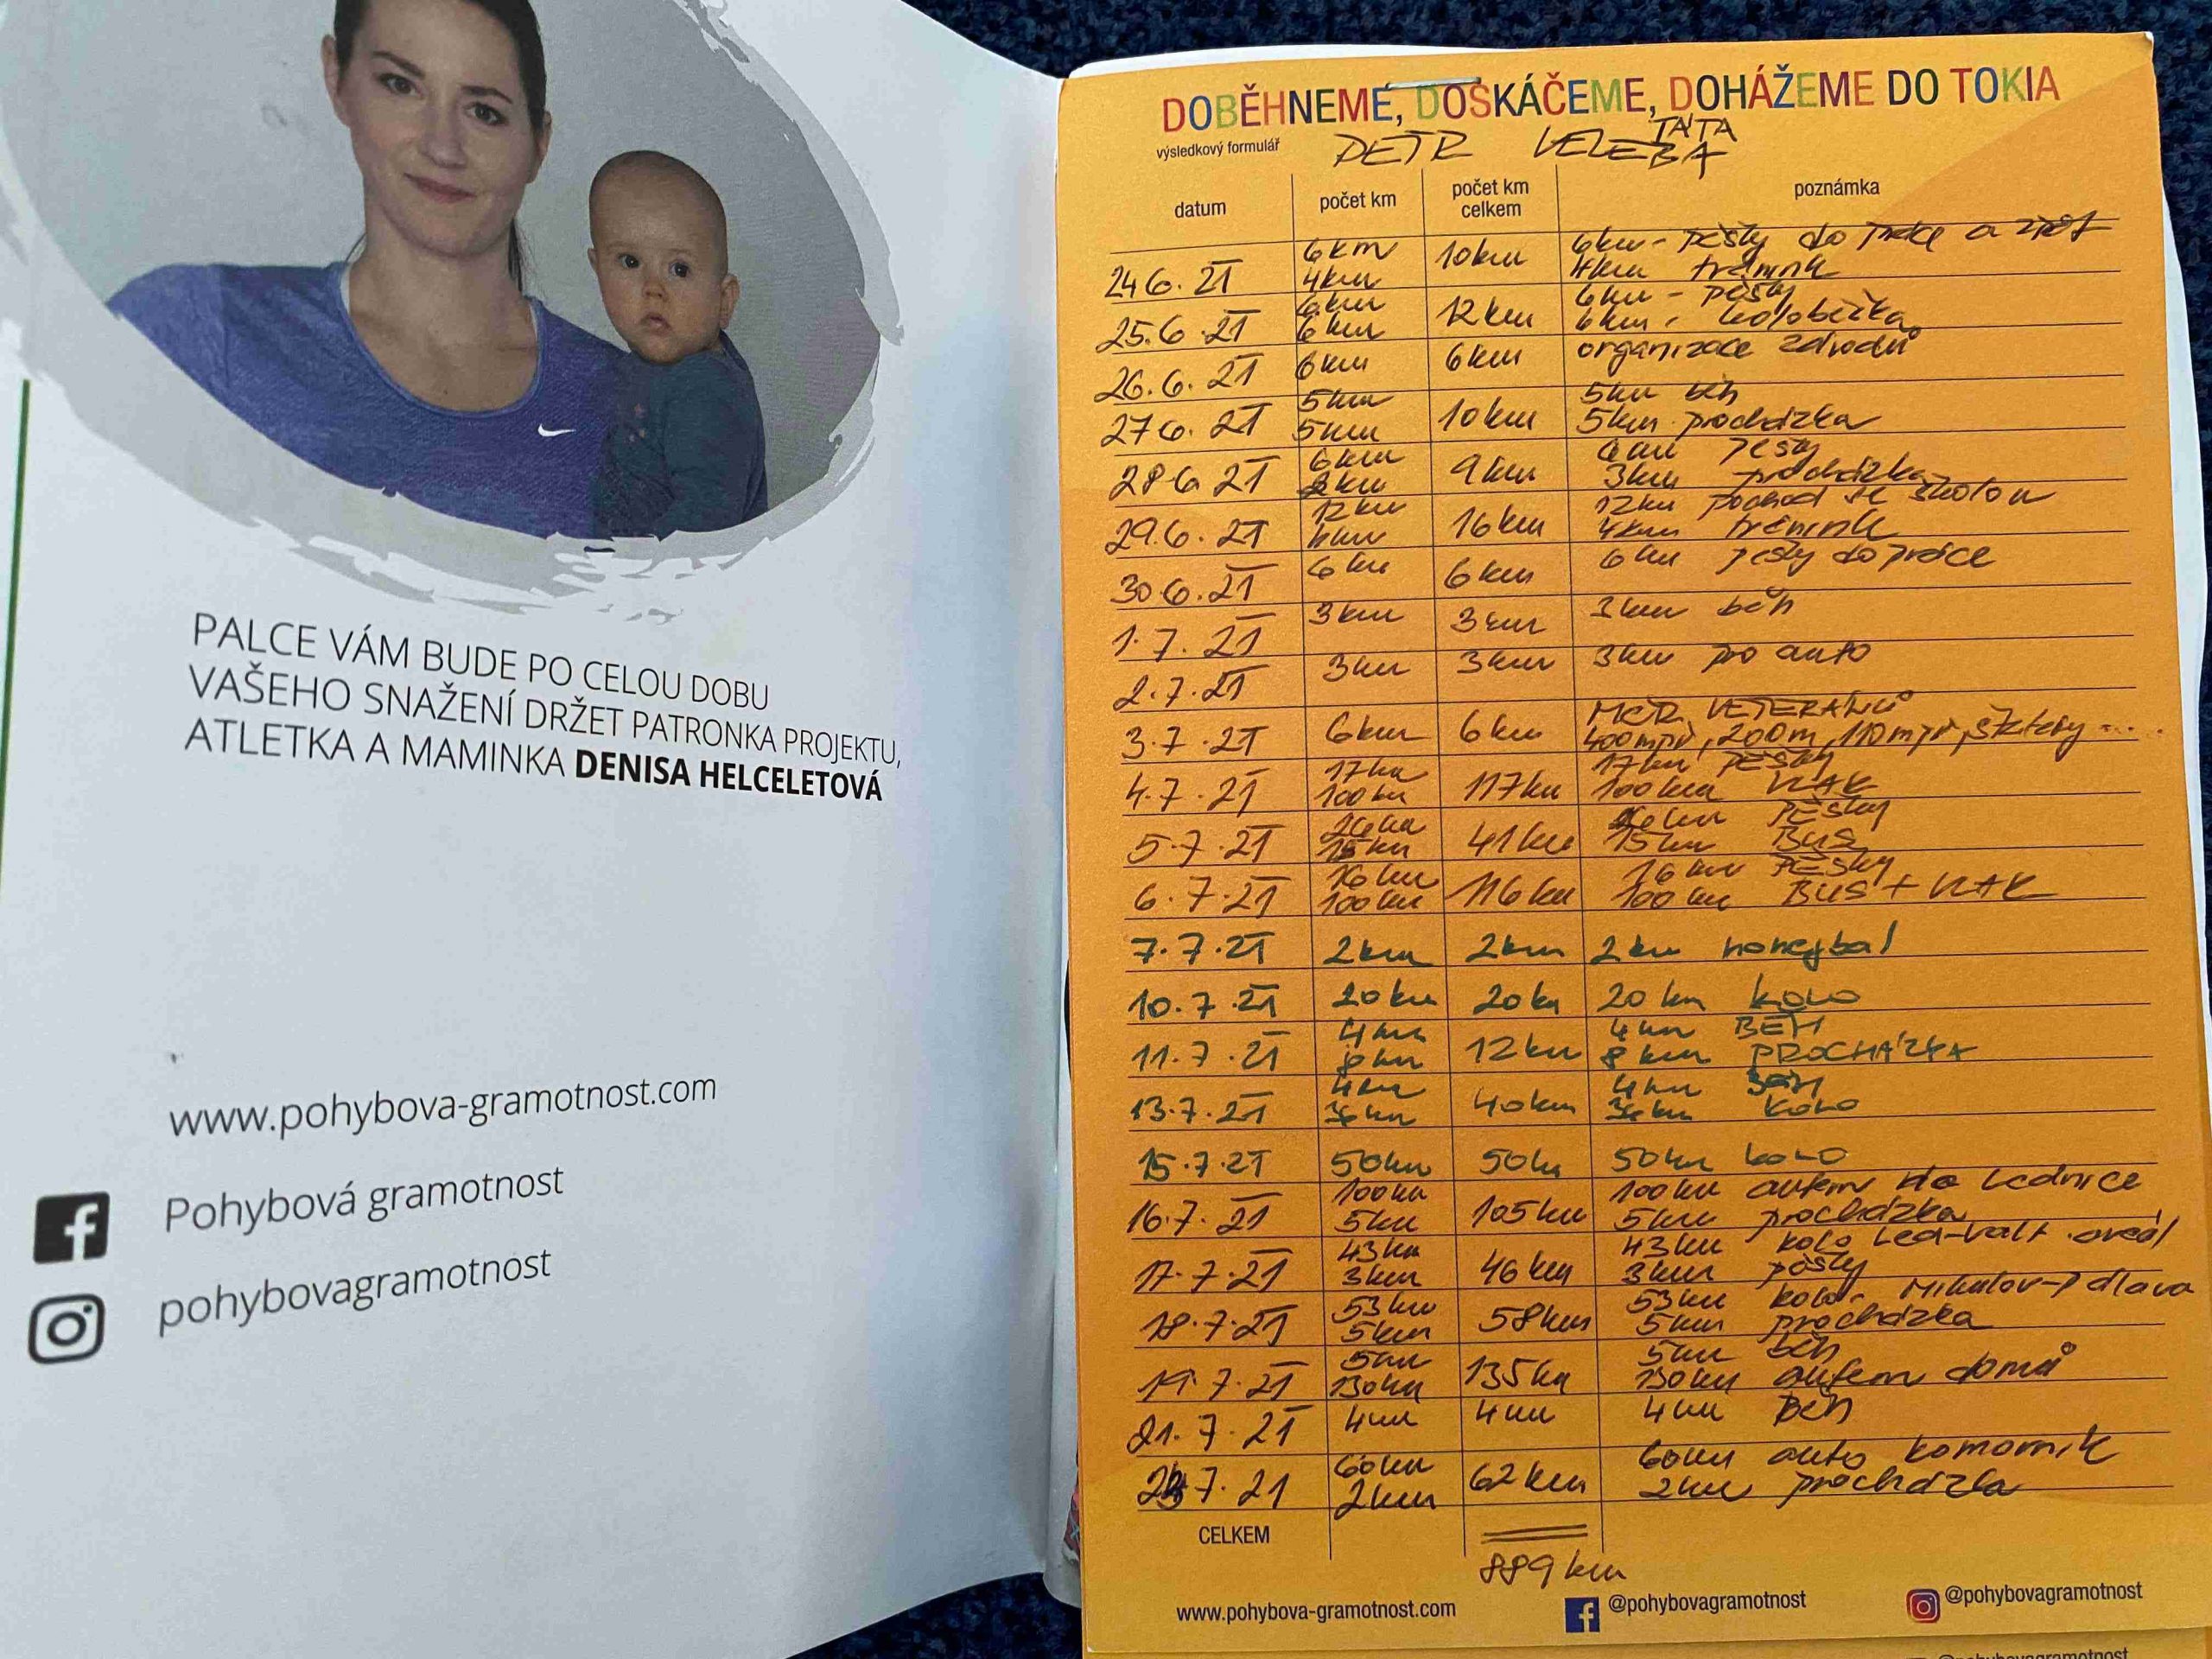 PALCE VÁM BUDE PO CELOU DOBU
VAŠEHO SNAŽENÍ DRŽET PATRONKA PROJEKTU,
ATLETKA A MAMINKA DENISA HELCELETOVÁ
www.pohybova-gramotnost.com
Pohybová gramotnost
pohybovagramotnost
DOBĚHNEME, DOSKÁČEME, DOHÁŽEME DO TOKIA
výsledkový formulář PETR VELEBA TÁTA
datum počet km počet km celkem poznámka
24 6. 21 6 km 4km 10km 6km - pěšky do práce a zpět 4km trénink
25.6.21 6km 6km 12km 6km - pěšky 6km koloběžka
26.6.21 6km 6km organizace závodů
27 6. 21 5km 5km 10km 5km běh 5km procházka
28 6 21 6km 3km 9km 6km pěšky 3km procházka
29.6.21 12km 4km 16km 12km pochod se školou 4km trénink
30 6.21 6km 6km 6km pěšky do práce
1.7.21 3km 3km 3km běh
2.7.21 3km 3km 3km pro auto
3.7.21 6km 6km MČR VETERÁNŮ 400mpř, 200m, 110mpř, štafety ....
4.7.21 17km 100km 117km 17km pěšky 100km VLAK
5.7.21 26km 15km 41km 26km PĚŠKY 15km BUS
6.7.21 16km 100km 116km 16km PĚŠKY 100km BUS + VLAK
7.7.21 2km 2km 2km nohejbal
10.7.21 20km 20km 20km KOLO
11.7.21 4km 8km 12km 4km BĚH 8km PROCHÁZKA
13.7.21 4km 36km 40km 4km BĚH 36km KOLO
15.7.21 50km 50km 50km KOLO
16.7.21 100km 5km 105km 100km autem do Lednice 5km procházka
17.7.21 43km 3km 46km 43km kolo Led-Valt. areál 3km pěšky
18.7.21 53km 5km 58km 53km kolo - Mikulov-Pálava 5km procházka
19.7.21 5km 130km 135km 5km běh 130km autem domů
21.7.21 4km 4km 4km Běh
7.21 60km 2km 62km 60km auto Komorník 2km procházka
CELKEM 889 km
www.pohybova-gramotnost.com @pohybovagramotnost @pohybovagramotnost
@pohybovagramotnost